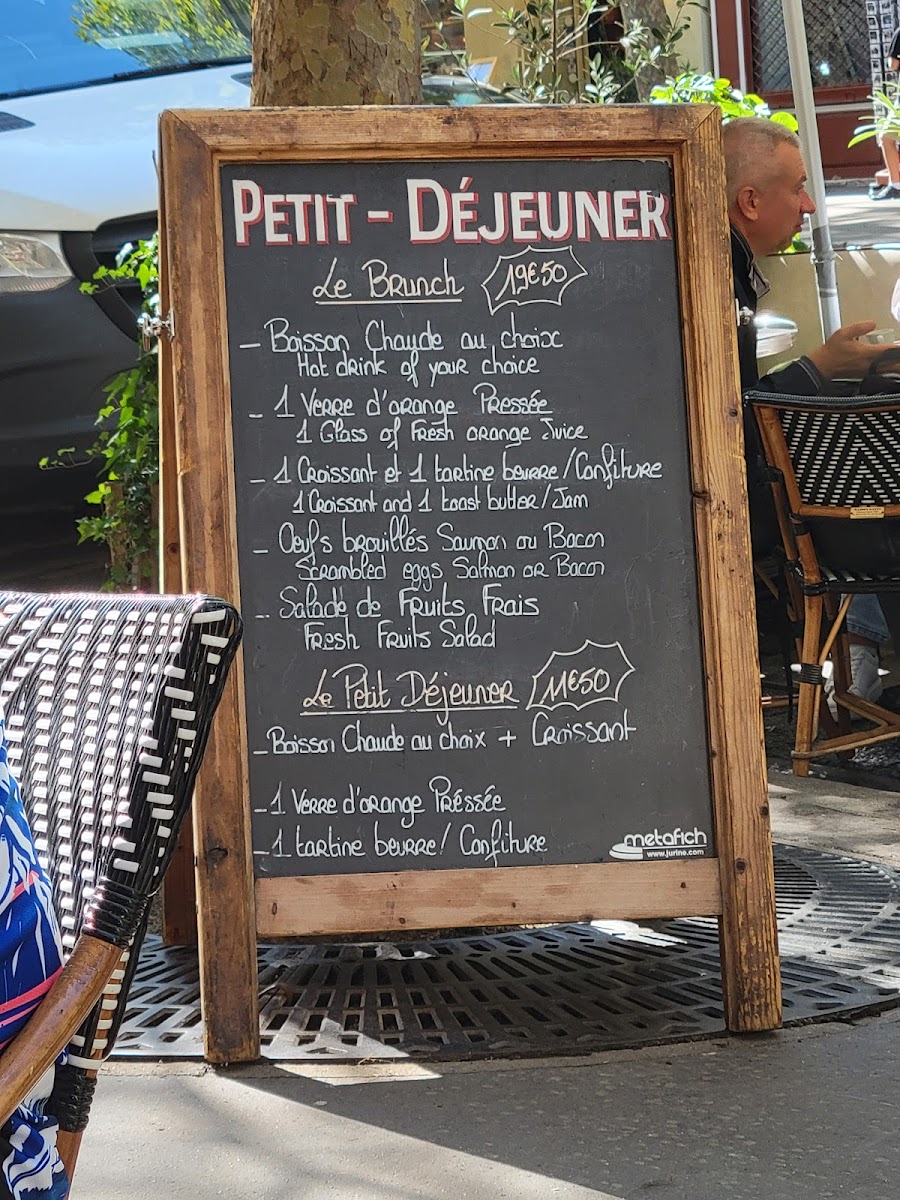 PETIT - DÉJEUNER
Le Brunch 19€50
- Boisson Chaude au choix
Hot drink of your choice
- 1 Verre d'orange Pressée
1 Glass of Fresh orange Juice
- 1 Croissant et 1 tartine beurre/Confiture
1 Croissant and 1 toast butter/Jam
- Oeufs brouillés Saumon ou Bacon
Scrambled eggs Salmon or Bacon
- Salade de Fruits Frais
Fresh Fruits Salad
Le Petit Déjeuner 11€50
- Boisson Chaude au choix + Croissant
- 1 Verre d'orange Préssée
- 1 tartine beurre/ Confiture
metafich
www.jurine.com